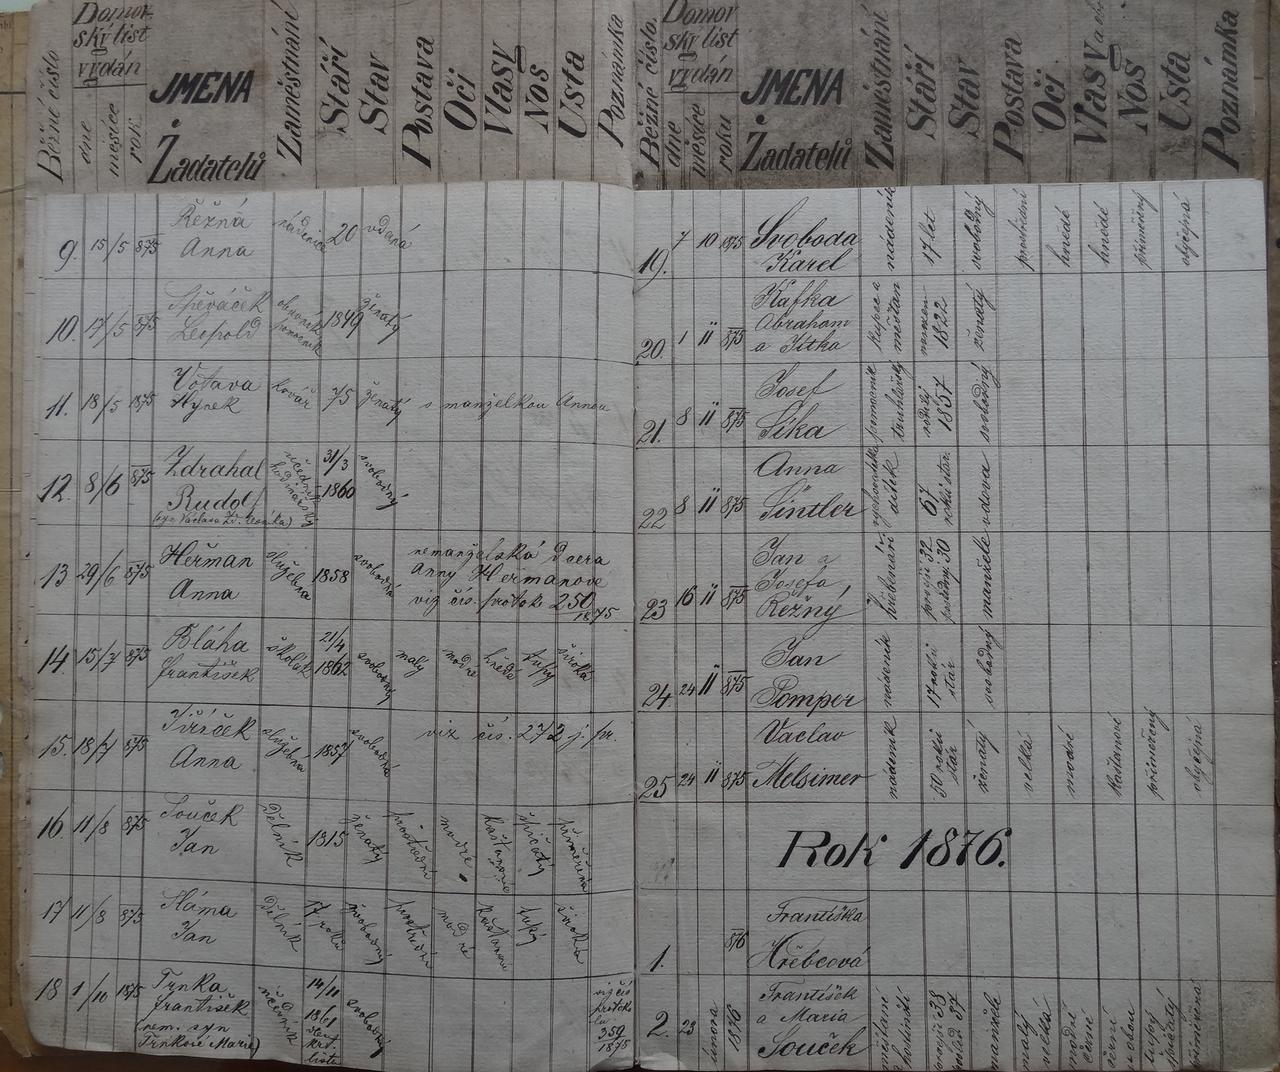 Běžné číslo
Domovský list vydán
dne
měsíce
rok
JMENA Žadatelů
Zaměstnání
Stáří
Stav
Postava
Oči
Vlasy
Nos
Usta
Poznámka
9. 15/5 875 Řežná Anna nádenice 20 vdaná
10. 17/5 875 Spěváček Leopold 1849 ženatý
11. 18/5 1875 Votava Hynek kovář 75 ženatý s manželkou Annou
12. 8/6 875 Zdrahal Rudolf učedník hodinářský 31/3 1860 svobodný
13 29/6 875 Heřman Anna služebna 1858 svobodná nemanželská dcera
Anny Heřmanove
viz čís. protok. 250/1875
14. 15/7 875 Bláha František školák 21/4 1862 svobodný malý modré hnědé tupý široká
15. 18/7 875 Jiříček Anna služebna 1857 svobodná viz čís. 272 j. pr.
16 11/8 875 Souček Jan Dělník 1815 ženatý prostřední modré kaštanové špičatý přiměřená
17 11/8 875 Sláma Jan Dělník 17 roků svobodný prostřední modré kaštanové tupý široká
18 1/10 1875 Trnka František
nem. syn
Trnkové Marie) učedník 14/11 1861 svobodný viz čís protokolu 359/1875
Běžné číslo.
Domovský list vydán
dne
měsíce
roku
JMENA Žadatelů
Zaměstnání
Stáří
Stav
Postava
Oči
Vlasy
Nos
Usta
Poznámka
19. 7 10 1875 Svoboda Karel nádeník 17 let svobodný prostřední hnědé hnědé přiměřený obyčejná
20. 1 11 875 Kafka
Abraham
a Jitka kupec a měštan 1822 ženatý
21. 8 11 875 Josef
Sika pomocník truhlářský 1857 svobodný
22 8 11 875 Anna
Šintler 67 roků star. vdova
23 16 11 875 Jan a
Josefa
Řežný hřebenář 32 30 manžele
24 24 11 875 Jan
Pomper nádeník 17 roků stár svobodný
25 24 11 875 Vaclav
Melsimer nádeník 50 roků stár ženatý velká modré kaštanové přiměřený obyčejná
Rok 1876.
1. 876 Františka
Hřebcová
2. 23 února 1876 František
a Maria
Souček manžele